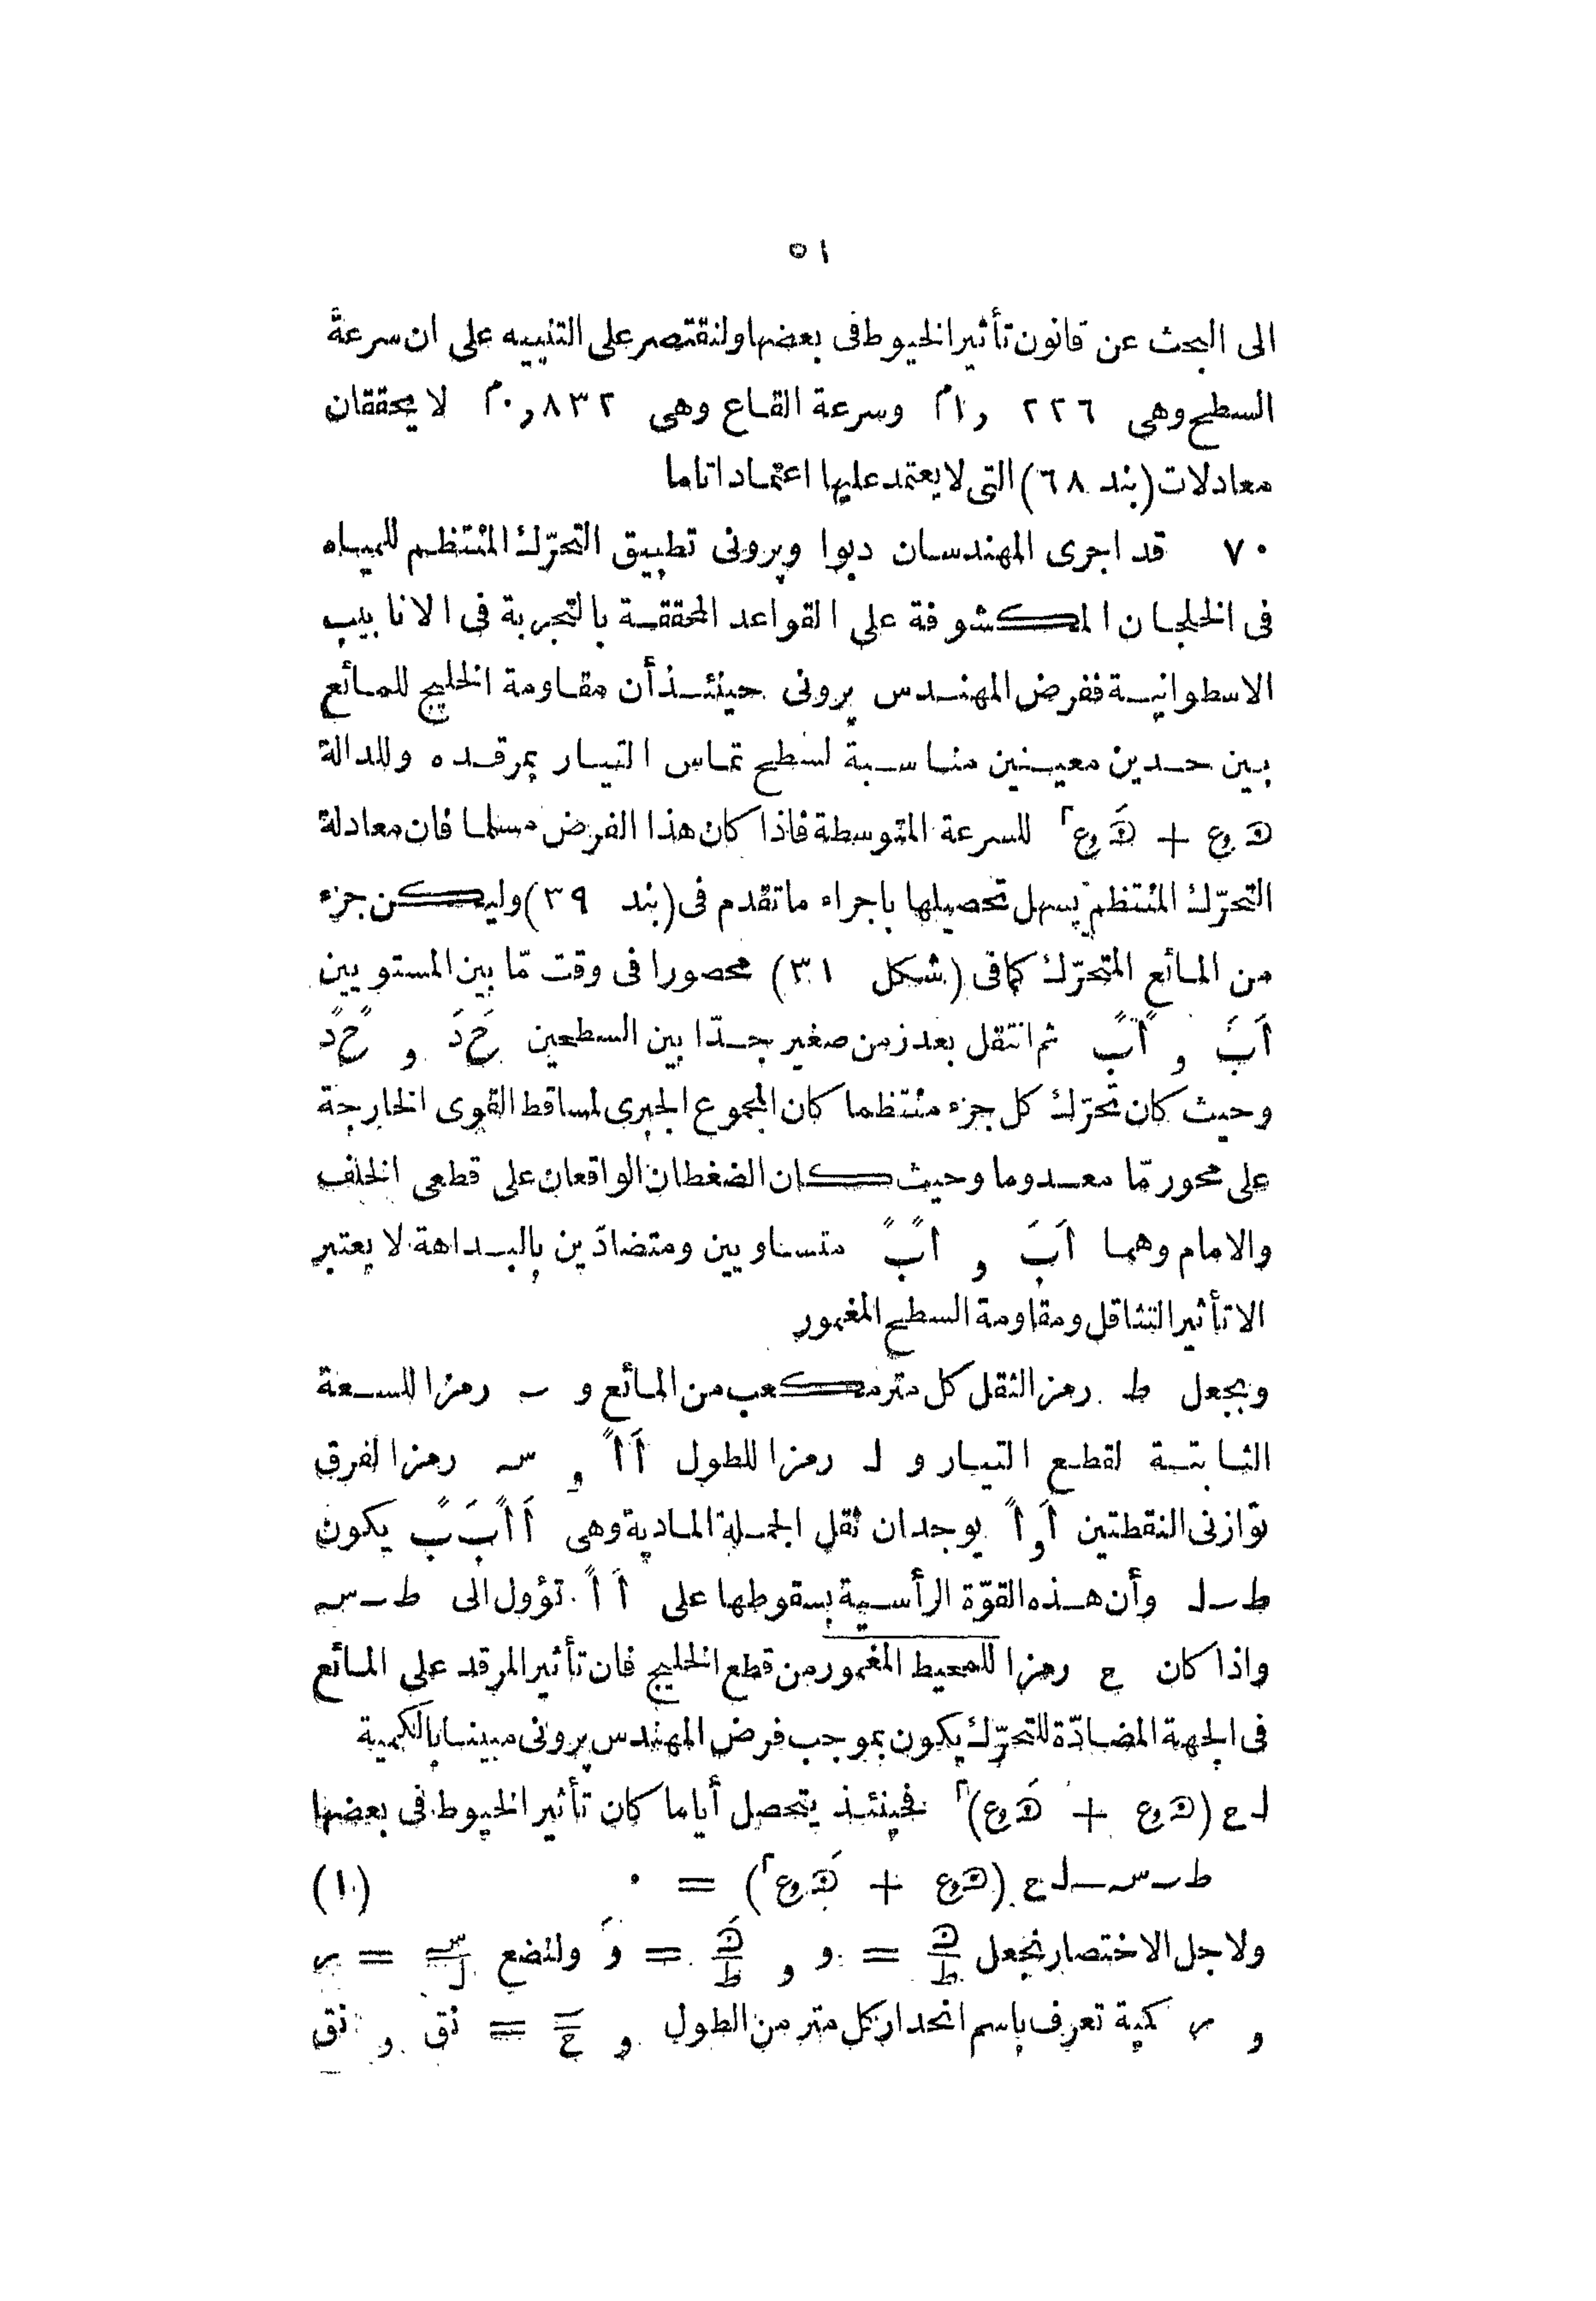 ٥١
الى البحث عن قانون تأثير الخيوط فى بعضها ولنقتصر على التنبيه على ان سرعة
السطح وهى ٢٢٦ ,١م وسرعة القاع وهى ٨٣٢ ,٠م لا يحققان
معادلات (بند ٦٨) التى لا يعتمد عليها اعتمادا تاما
٧٠ قد اجرى المهندسان دبوا وپرونى تطبيق التحرّك المنتظم للمياه
فى الخلجان المكشوفة على القواعد المحققة بالتجربة فى الانابيب
الاسطوانية ففرض المهندس پرونى حينئذ أن مقاومة الخليج للمائع
بين حدين معينين مناسبة لسطح تماس التيار بمرقده وللدالة
ﻫ وع + ﻫَ وع٢ للسرعة المتوسطة فاذا كان هذا الفرض مسلما فان معادلة
التحرّك المنتظم يسهل تحصيلها باجراء ما تقدم فى (بند ٣٩) وليكن جزء
من المائع المتحرّك كما فى (شكل ٣١) محصورا فى وقت مّا بين المستويين
اَبَ و اًبً ثم انتقل بعد زمن صغير جدّا بين السطحين حَدَ و حًدً
وحيث كان تحرّك كل جزء منتظما كان المجموع الجبرى لمساقط القوى الخارجة
على محور مّا معدوما وحيث كان الضغطان الواقعان على قطعى الخلف
والامام وهما اَبَ و اًبً متساويين ومتضادّين بالبداهة لا يعتبر
الا تأثير التثاقل ومقاومة السطح المغمور
وبجعل ط رمزا لثقل كل متر مكعب من المائع و ب رمزا للسعة
الثابتة لقطع التيار و ل رمزا للطول اَاً و س رمزا لفرق
توازنى النقطتين اَ و اً يوجد ان ثقل الجملة المادية وهى اَاًبَبً يكون
ط ب ل وأن هذه القوّة الرأسية بسقوطها على اَاً تؤول الى ط ب س
واذا كان ح رمزا للمحيط المغمور من قطع الخليج فان تأثير المرقد على المائع
فى الجهة المضادّة للتحرّك يكون بموجب فرض المهندس پرونى مبينا بالكمية
ل ح (ﻫ وع + ﻫَ وع)٢ فحينئذ يتحصل أياما كان تأثير الخيوط فى بعضها
ط ب س ـ ل ح (ﻫ وع + ﻫَ وع٢) = ٠ (١)
ولاجل الاختصار نجعل ﻫ/ط = و و ﻫَ/ط = وَ ولنضع س/ل = م
و م كمية تعرف باسم انحدار كل متر من الطول و ب/ح = نق و نق